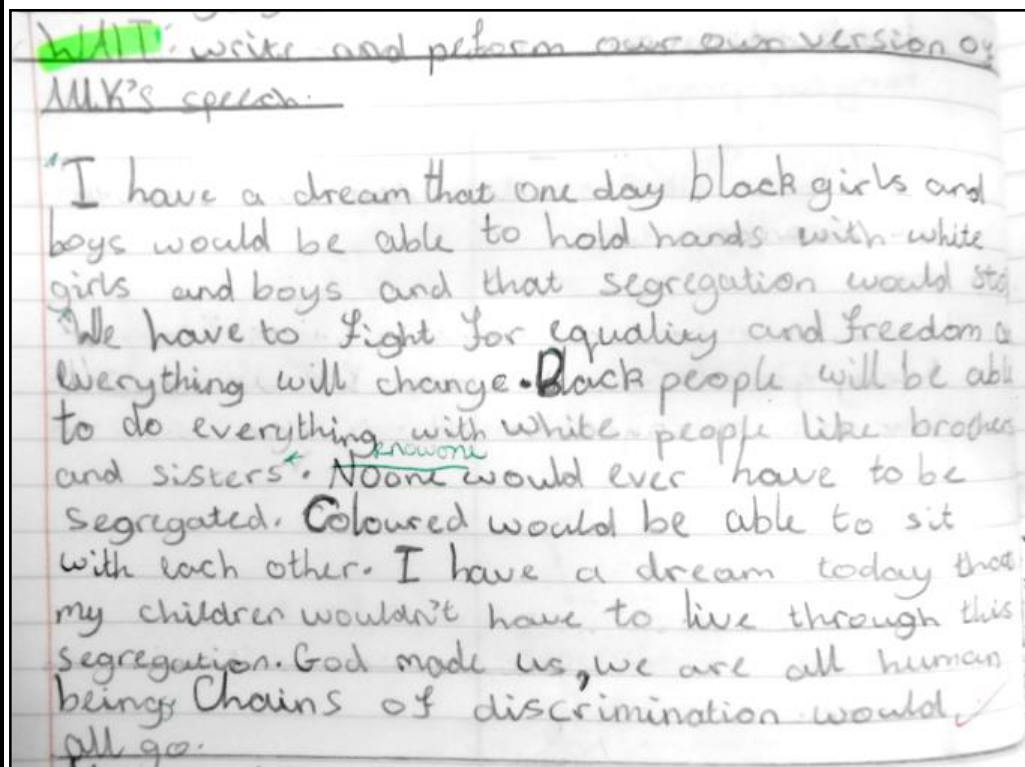 WALT: write and peform our own version of
MLK's speech.
"I have a dream that one day black girls and
boys would be able to hold hands with white
girls and boys and that segregation would
"We have to fight for equality and freedom
everything will change. Black people will be abl
to do everything with white people like brothers
knowone
and sisters". Noone would ever have to be
segregated. Coloured would be able to sit
with each other. I have a dream today that
my children wouldn't have to live through this
segregation. God made us, we are all human
beings Chains of discrimination would
all go.